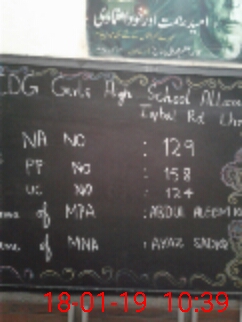 امید ہمت اور خود اعتمادی
CDG Girls High School Allama
Iqbal Rd
NA NO : 129
PP NO : 158
UC NO : 124
of MPA : ABDUL ALEEM
of MNA : AYAZ SADIQ
18-01-19 10:39